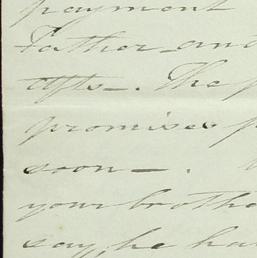 payment
Father and
The p
promises p
soon —.
your brothe
say, he ha